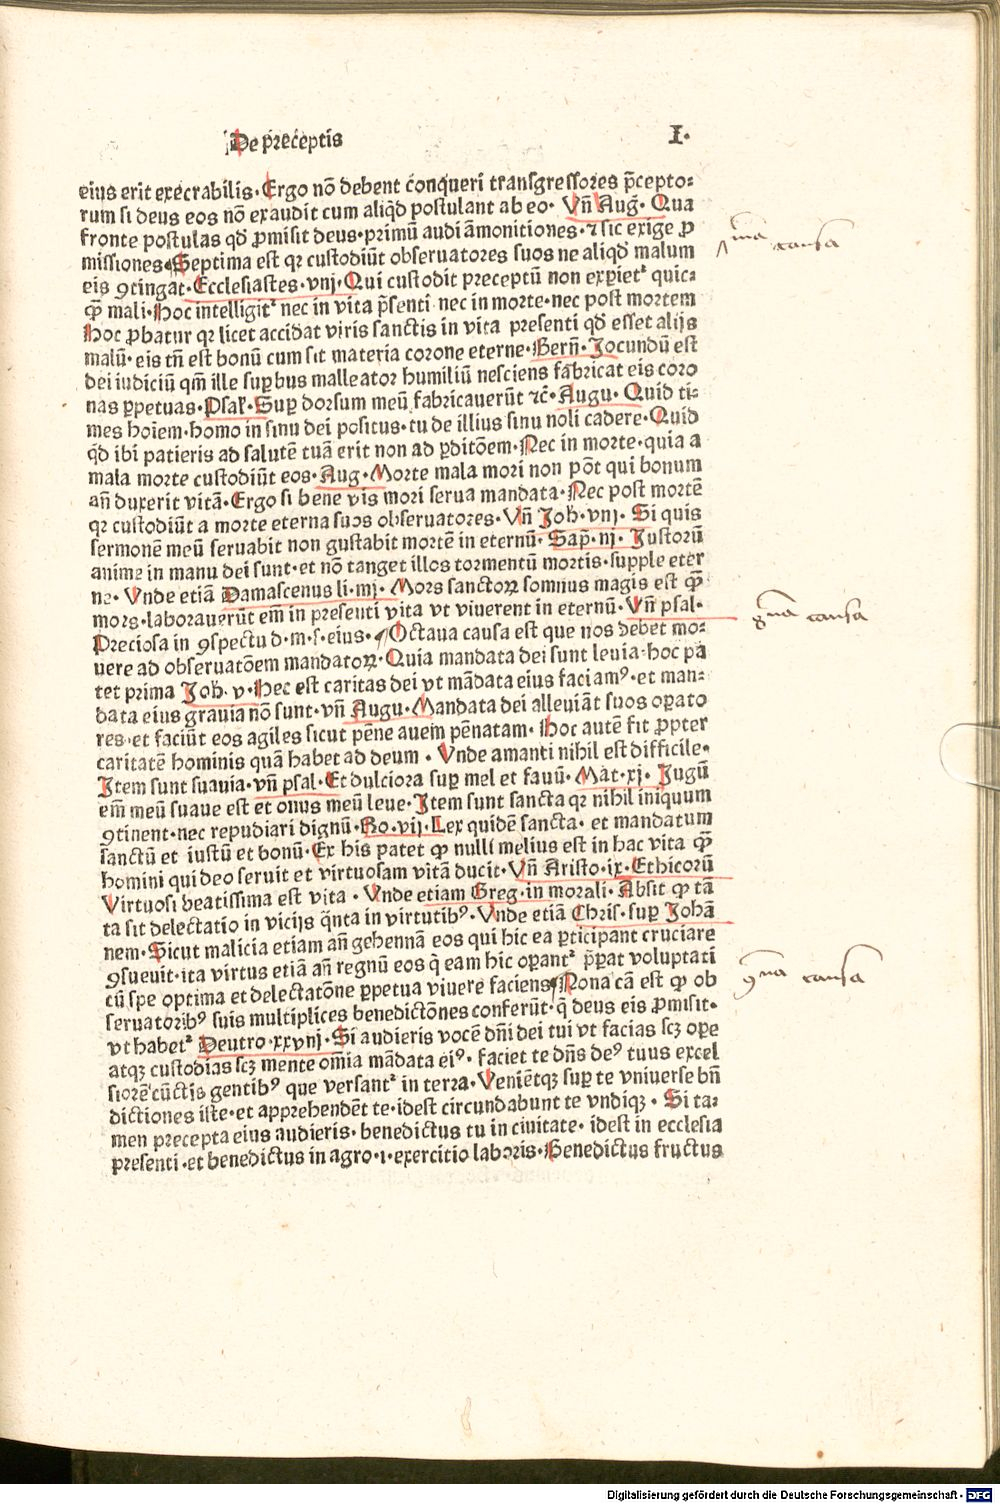 De p̄ceptis
I.
eius erit execrabilis. Ergo nō debent conqueri transgressores p̄cepto⸗
rum si deus eos nō exaudit cum aliqd̄ postulant ab eo. Vn̄ Auḡ. Qua
fronte postulas qd̄ ꝓmisit deus. primū audi āmonitiones. ⁊ sic exige ꝓ
missiones. Septima est qꝛ custodiūt obseruatores suos ne aliqd̄ malum
eis ꝯtingat. Ecclesiastes. vnj. Qui custodit preceptū non exꝑietᷣ quic⸗
qͣꝫ mali. Hoc intelligitᷣ nec in vita p̄senti nec in morte. nec post mortem
Hoc ꝓbatur qꝛ licet accidat viris sanctis in vita presenti qd̄ esset alijs
malū. eis tn̄ est bonū cum sit materia corone eterne. Bern̄. Jocundū est
dei iudiciū qm̄ ille suꝑbus malleator humiliū nesciens fabricat eis coro
nas ꝑpetuas. Psal. Suꝑ dorsum meū fabricauerūt ⁊c̄. Augu. Quid ti⸗
mes hoīem. homo in sinu dei positus. tu de illius sinu noli cadere. Quid
qd̄ ibi patieris ad salutē tuā erit non ad ꝑditōem. Nec in morte. quia a
mala morte custodiūt eos. Aug. Morte mala mori non pōt qui bonum
an̄ duxerit vitā. Ergo si bene vis mori serua mandata. Nec post mortē
qꝛ custodiūt a morte eterna suos obseruatores. Vn̄ Joh. vnj. Si quis
sermonē meū seruabit non gustabit mortē in eternū. Sap̄. nj. Justorū
anime in manu dei sunt. et nō tanget illos tormentū mortis. supple eter
ne. Vnde etiā Damascenus li. mj. Mors sanctoꝝ somnus magis est qͣꝫ
mors. laborauerūt em̄ in presenti vita vt viuerent in eternū. Vn̄ psal.
Preciosa in ꝯspectu d. m. s. eius. Octaua causa est que nos debet mo⸗
uere ad obseruatōem mandatoꝝ. Quia mandata dei sunt leuia. hoc pa
tet prima Joh. v. Hec est caritas dei vt mādata eius faciamꝰ. et man⸗
data eius grauia nō sunt. vn̄ Augu. Mandata dei alleuiāt suos oꝑato
res. et faciūt eos agiles sicut pēne auem pēnatam. Hoc autē fit ꝓpter
caritatē hominis quā habet ad deum. Vnde amanti nihil est difficile.
Item sunt suauia. vn̄ psal. Et dulciora suꝑ mel et fauū. Mat. xj. Jugū
em̄ meū suaue est et onus meū leue. Item sunt sancta qꝛ nihil iniquum
ꝯtinent. nec repudiari dignū. Ro. vij. Lex quidē sancta. et mandatum
sanctū et iustū et bonū. Ex his patet ꝙ nulli melius est in hac vita qͣꝫ
homini qui deo seruit et virtuosam vitā ducit. Vn̄ Aristo. ix. Ethicorū
Virtuosi beatissima est vita. Vnde etiam Greg. in morali. Absit ꝙ tā
ta sit delectatio in vicijs q̄nta in virtutibꝰ. Vnde etiā Chris. suꝑ Johā
nem. Sicut malicia etiam an̄ gehennā eos qui hic ea ꝑticipant cruciare
ꝯsueuit. ita virtus etiā an̄ regnū eos q̄ eam hic oꝑantᷣ p̄ꝑat voluptati
cū spe optima et delectatōne ꝑpetua viuere faciens. Nona cā est ꝙ ob
seruatoribꝰ suis multiplices benedictōnes conferūt. q̄ deus eis ꝓmisit.
vt habetᷣ Deutro. xxvnj. Si audieris vocē dn̄i dei tui vt facias scꝫ oꝑe
atqꝫ custodias scꝫ mente om̄ia mādata eiꝰ. faciet te dn̄s deꝰ tuus excel
siorē cūctis gentibꝰ que versantᷣ in terra. Veniētqꝫ suꝑ te vniuerse bn̄
dictiones iste. et apprehendēt te. idest circundabunt te vndiqꝫ. Si ta⸗
men precepta eius audieris. benedictus tu in ciuitate. idest in ecclesia
presenti. et benedictus in agro. i. exercitio laboris. Benedictus fructus
7ma causa
8na causa
9na causa
Digitalisierung gefördert durch die Deutsche Forschungsgemeinschaft - DFG